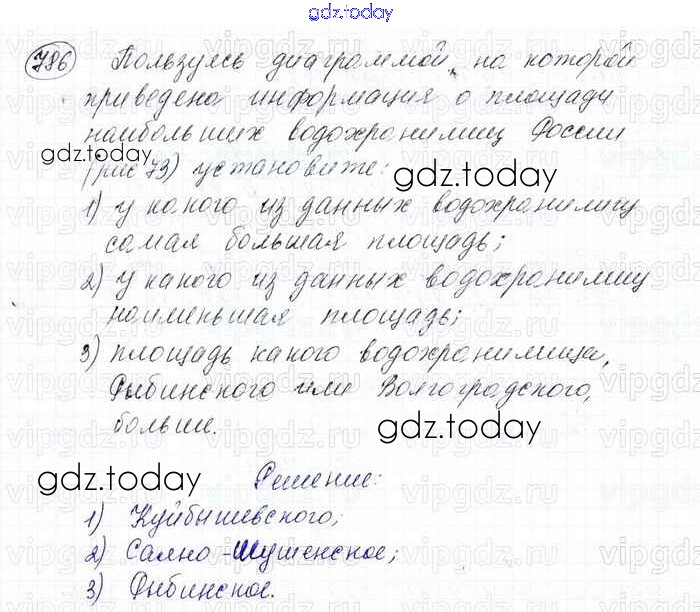 gdz.today
786 Пользуясь диаграммой, на которой
приведена информация о площади
наибольших водохранилищ России
gdz.today
(рис 73) установите:
gdz.today
1) у какого из данных водохранилищ
самая большая площадь;
2) у какого из данных водохранилищ
наименьшая площадь;
3) площадь какого водохранилища,
Рыбинского или Волгоградского,
больше.
gdz.today
gdz.today
Решение:
1) Куйбышевского;
2) Саяно-Шушенское;
3) Рыбинское.